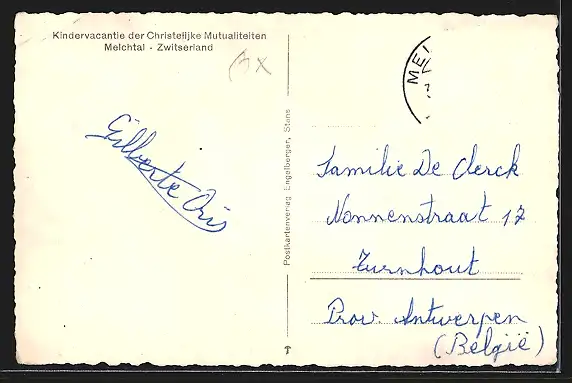 Kindervacantie der Christelijke Mutualiteiten
Melchtal - Zwitserland
Gilberte Oris
Postkartenverlag Engelberger, Stans
MEL
Familie De Clerck
Nonnenstraat 12
Turnhout
Prov. Antwerpen
(België)